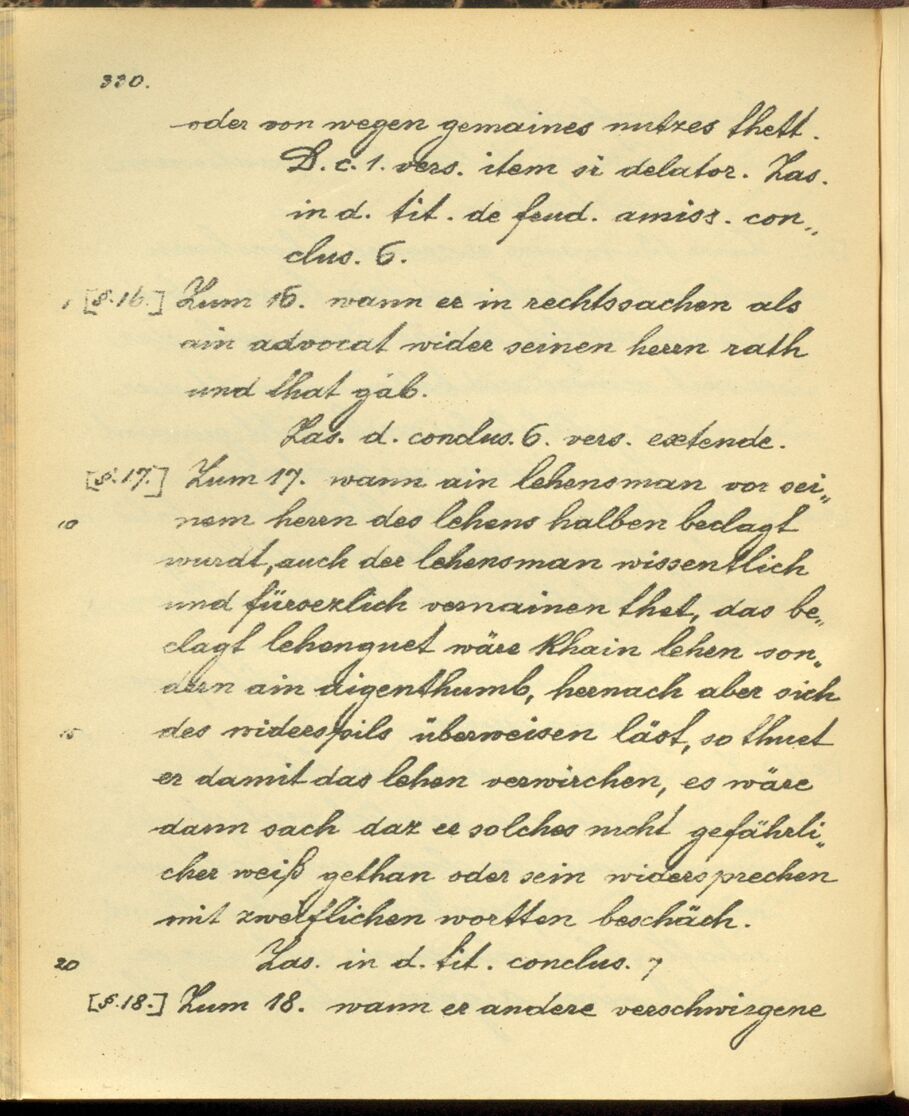 330.
oder von wegen gemaines nutzes thett.
D. c. 1. vers. item si delator. Zas.
in d. tit. de feud. amiss. con„
clus. 6.
[§. 16.] Zum 16. wann er in rechtssachen als
ain advocat wider seinen herrn rath
und that gäb.
Zas. d. conclus. 6. vers. extende.
[§. 17.] Zum 17. wann ain lehensman vor sei„
10 nem herrn des lehens halben beclagt
wurdt, auch der lehensman wissentlich
und fürsezlich vernainen thet, das be„
clagt lehenguet wäre khain lehen son„
dern ain aigenthumb, hernach aber sich
15 des widerspils überweisen läst, so thuet
er damit das lehen verwirchen, es wäre
dann sach daz er solches nicht gefährli„
cher weiß gethan oder sein widersprechen
mit zweiflichen wortten beschäch.
20 Zas. in d. tit. conclus. 7
[§. 18.] Zum 18. wann er andere verschwigene